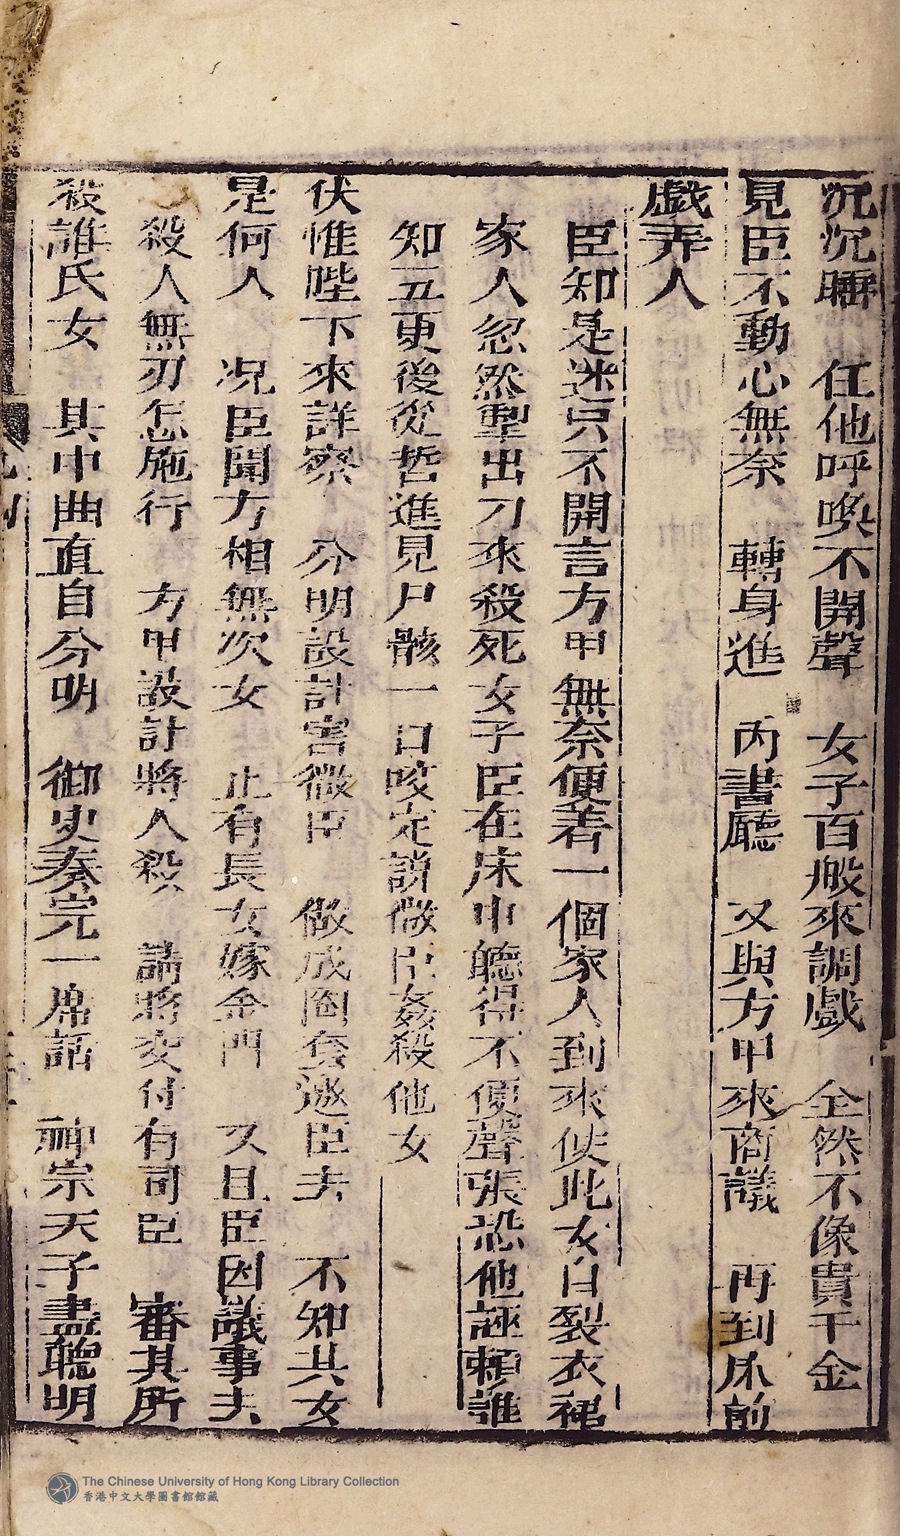 沉沉睡　任他呼喚不開聲　女子百般來調戲　全然不像貴千金
見臣不動心無奈　轉身進　內書廳　又與方甲來商議　再到床前
戲弄人
臣知是迷只不開言方甲無奈便着一個家人到來使此女自裂衣裙
家人忽然掣出刀來殺死女子臣在床中聽得不便聲張恐他誣賴誰
知五更後從哲進見尸骸一口咬定說做臣姦殺他女
伏惟陛下來詳察　分明設計害微臣　做成圈套遜臣去　不知其女
是何人　况臣聞方相無次女　止有長女嫁金門　又且臣因議事去
殺人無刃怎施行　方甲設計將人殺　請將交付有司臣　審其所
殺誰氏女　其中曲直自分明　御史奏完一席話　神宗天子盡聽明
The Chinese University of Hong Kong Library Collection
香港中文大學圖書館館藏